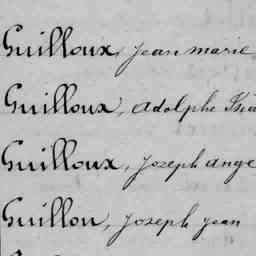 Guilloux, Jean marie
Guilloux, Adolphe
Guilloux, Joseph ange
Guillou, Joseph Jean